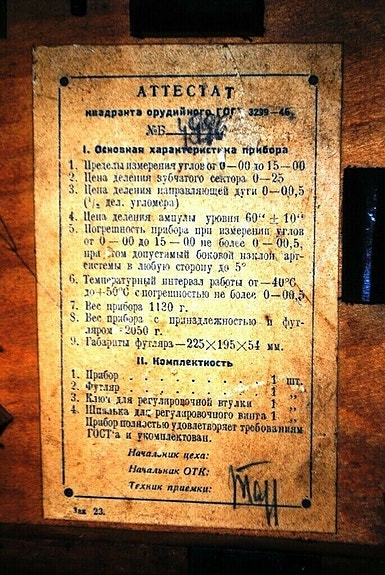 АТТЕСТАТ
квадранта орудийного ГОСТ 3299—46
№Б
I. Основная характеристика прибора
1. Пределы измерения углов от 0—00 до 15—00
2. Цена деления зубчатого сектора 0—25
3. Цена деления направляющей дуги 0—00,5
дел. угломера)
4. Цена деления ампулы уровня 60" ± 10"
5. Погрешность прибора при измерении углов
от 0—00 до 15—00 не более 0—00,5,
при этом допустимый боковой наклон арт-
системы в любую сторону до 5°
6. Температурный интервал работы от —40°С
до +50°С с погрешностью не более 0—00,5
7. Вес прибора 1130 г.
8. Вес прибора с принадлежностью и фут-
ляром 2050 г.
9. Габариты футляра—225×195×54 мм.
II. Комплектность
1. Прибор . . . . . . . . . 1 шт.
2. Футляр . . . . . . . . . 1 "
3. Ключ для регулировочной втулки 1 "
4. Шпилька для регулировочного винта 1 "
Прибор полностью удовлетворяет требованиям
ГОСТ'а и укомплектован.
Начальник цеха:
Начальник ОТК:
Техник приемки:
Зак 23.